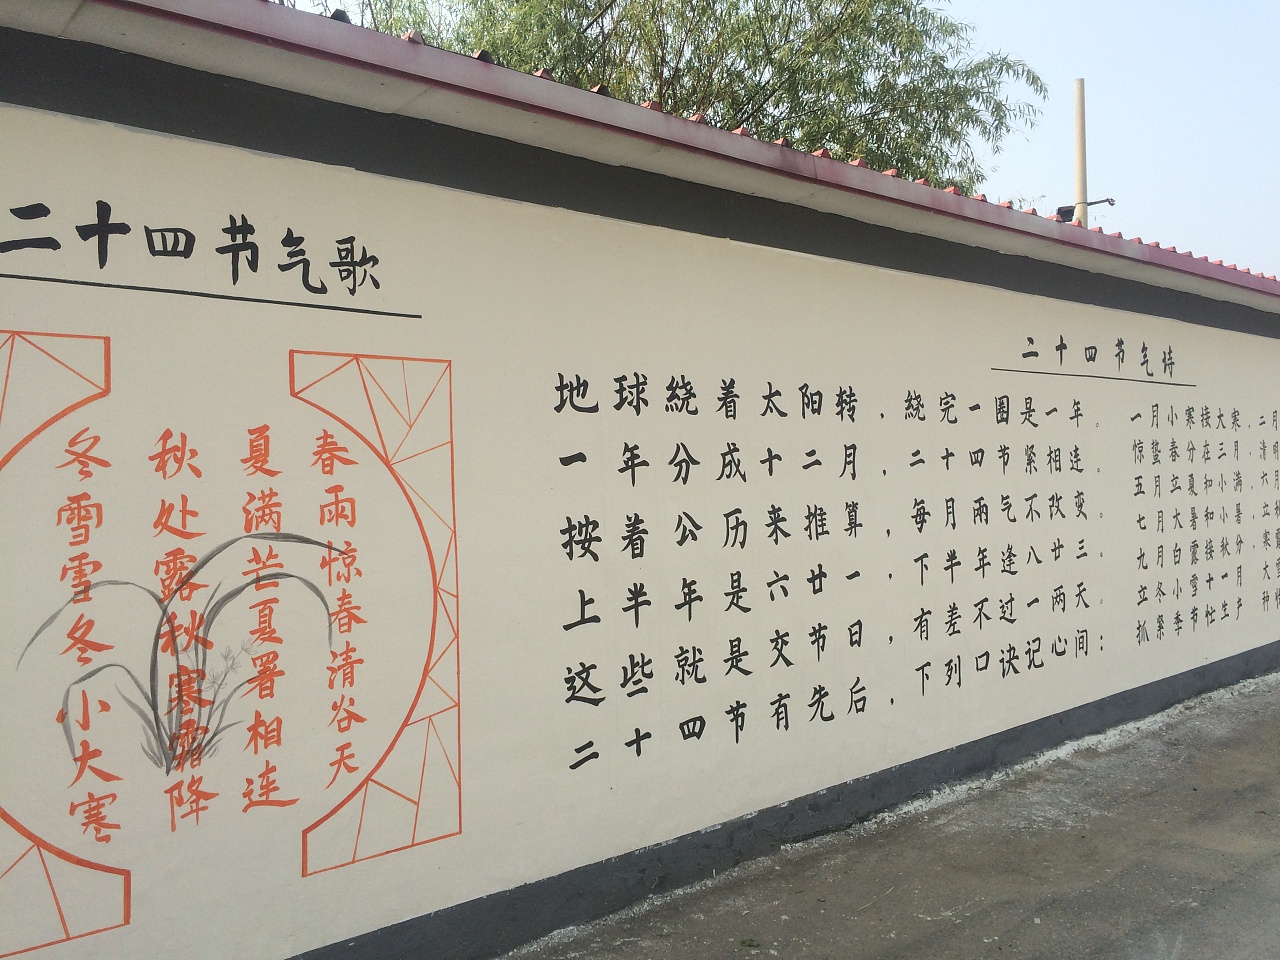 二十四节气歌
春雨惊春清谷天
夏满芒夏署相连
秋处露秋寒霜降
冬雪雪冬小大寒
地球繞着太阳转，繞完一圈是一年。
一年分成十二月，二十四节紧相连。
按着公历来推算，每月雨气不改变。
上半年是六廿一，下半年逢八廿三。
这些就是交节日，有差不过一两天。
二十四节有先后，下列口诀记心间：
二十四节气诗
一月小寒接大寒，二月
惊蛰春分在三月，清明
五月立夏和小满，六月
七月大暑和小暑，立秋
九月白露接秋分，寒露
立冬小雪十一月，大雪
抓紧季节忙生产，种